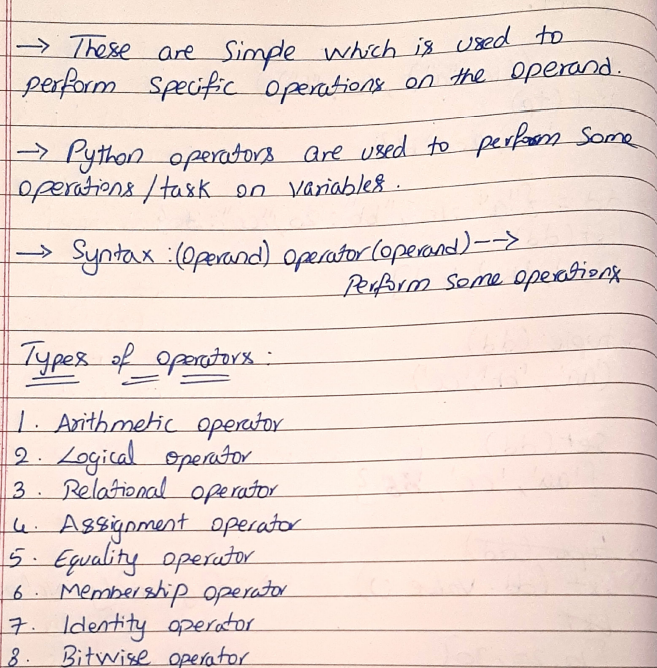 → These are Simple which is used to
perform Specific operations on the operand.
→ Python operators are used to perform Some
operations/task on variables.
→ Syntax :(operand) operator(operand)-->
Perform Some operations
Types of operators :
1. Arithmetic operator
2. Logical operator
3. Relational operator
4. Assignment operator
5. Equality operator
6. Membership operator
7. Identity operator
8. Bitwise operator